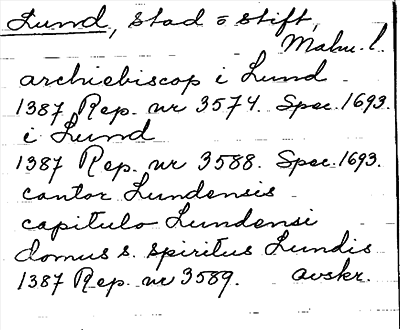 Lund, Stad o Stift,
Malm. l.
archiebiscop i Lund
1387 Rep. nr 3574. Spec. 1693.
i Lund
1387 Rep. nr 3588. Spec. 1693.
cantor Lundensis
capitulo Lundensi
domus s. spiritus Lundis
1387 Rep. nr 3589. avskr.